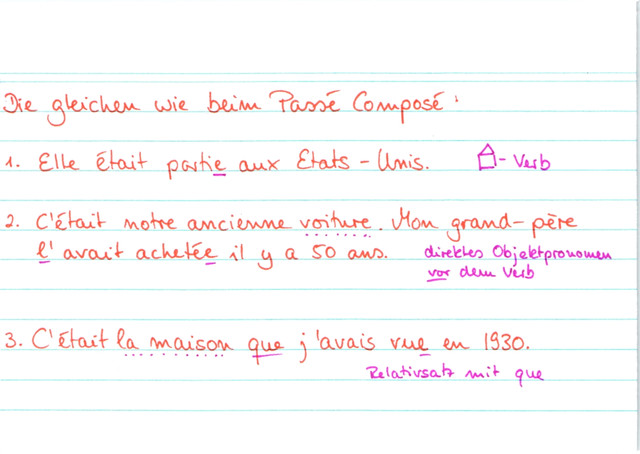 Die gleichen wie beim Passé Composé:
1. Elle était partie aux Etats-Unis. - Verb
2. C'était notre ancienne voiture. Mon grand-père
l'avait achetée il y a 50 ans. direktes Objektpronomen
vor dem Verb
3. C'était la maison que j'avais vue en 1930.
Relativsatz mit que